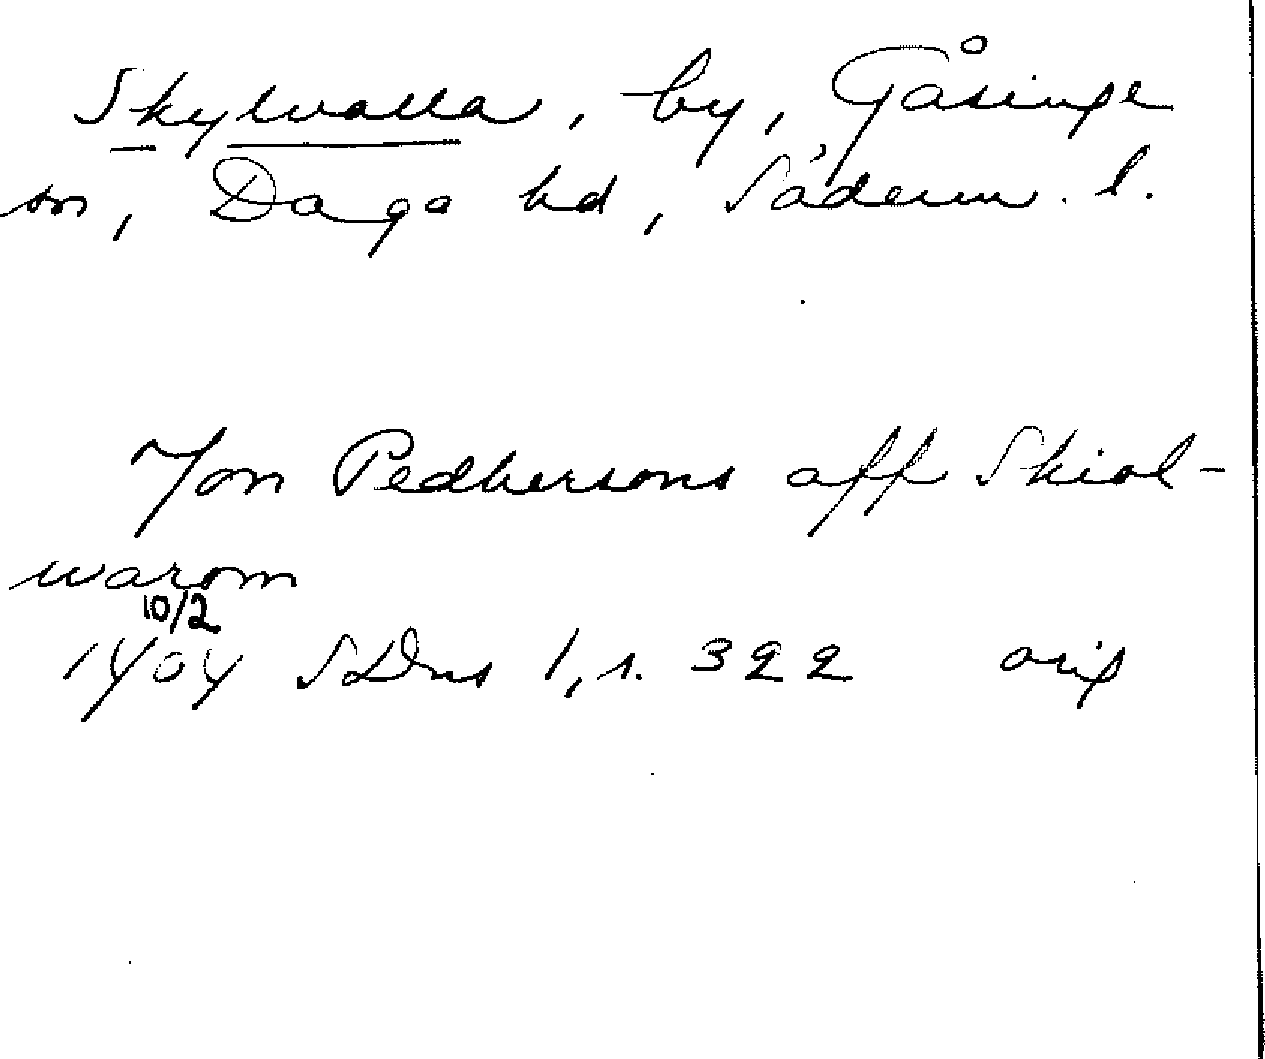 Skylvalla, by, Gåsinge
sn, Daga hd, Söderm. l.
Jon Pedhersons aff Skial-
warom
10/2
1404 SDns 1, s. 322 orig